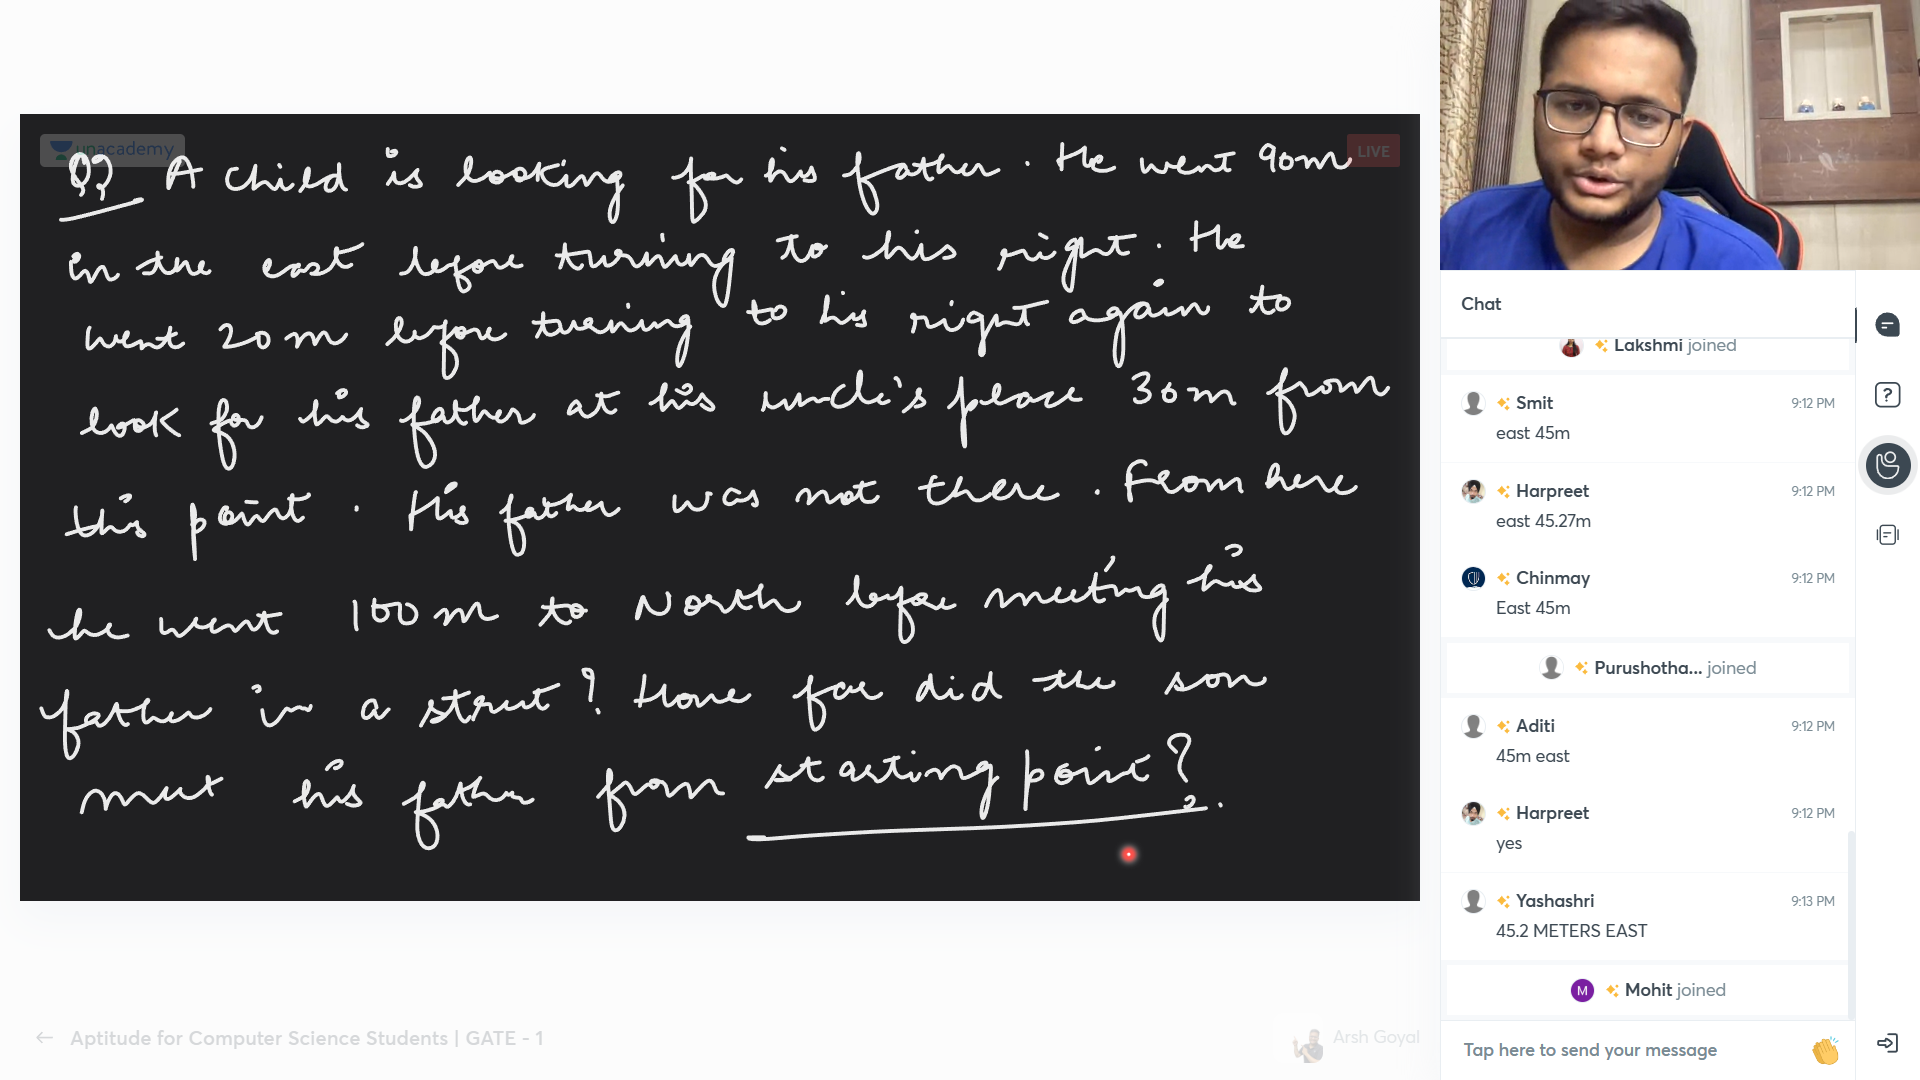 unacademy
LIVE
Q3 A child is looking for his father. He went 90m
in the east before turning to his right. He
went 20m before turning to his right again to
look for his father at his uncle's place 30m from
this point. His father was not there. From here
he went 100m to North before meeting his
father in a street? How far did the son
meet his father from starting point?
Aptitude for Computer Science Students | GATE - 1
Arsh Goyal
Chat
Lakshmi joined
Smit 9:12 PM
east 45m
Harpreet 9:12 PM
east 45.27m
Chinmay 9:12 PM
East 45m
Purushotha... joined
Aditi 9:12 PM
45m east
Harpreet 9:12 PM
yes
Yashashri 9:13 PM
45.2 METERS EAST
M Mohit joined
Tap here to send your message